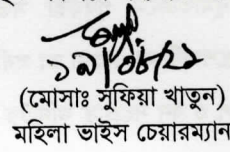 ১৯/০৮/২১
(মোসাঃ সুফিয়া খাতুন)
মহিলা ভাইস চেয়ারম্যান